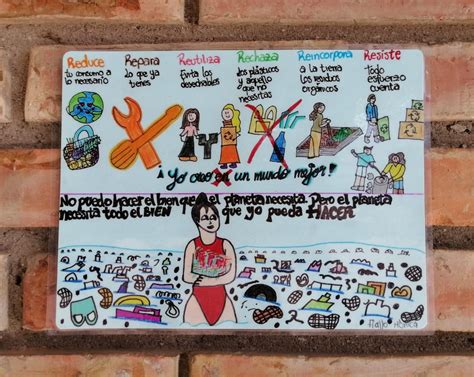 Reduce
tu consumo a
lo necesario
Repara
lo que ya
tienes
Reutiliza
Evita los
desechables
Rechaza
los plásticos
y aquello
que no
necesitas
Reincorpora
a la tierra
los residuos
orgánicos
Resiste
todo
esfuerzo
cuenta
¡Yo creo en un mundo mejor!
No puedo hacer el bien que el planeta necesita. Pero el planeta
necesita todo el BIEN que yo pueda HACER